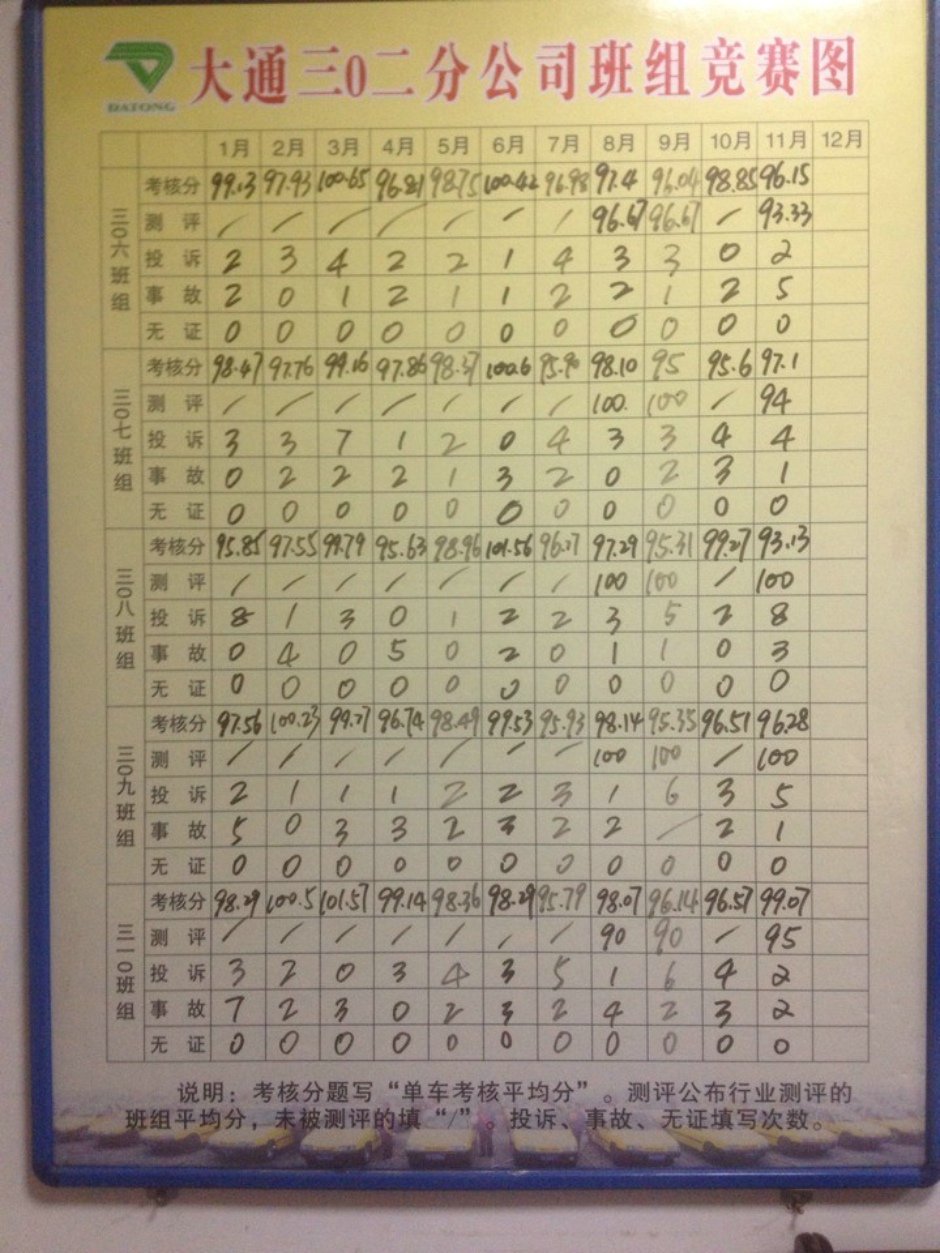 DATONG
大通三0二分公司班组竞赛图
1月 2月 3月 4月 5月 6月 7月 8月 9月 10月 11月 12月
三〇六班组
考核分 99.13 97.93 100.65 96.81 98.75 100.42 96.98 97.4 96.04 98.85 96.15
测 评 / / / / / / / 96.67 96.67 / 93.33
投 诉 2 3 4 2 2 1 4 3 3 0 2
事 故 2 0 1 2 1 1 2 2 1 2 5
无 证 0 0 0 0 0 0 0 0 0 0 0
三〇七班组
考核分 98.47 97.76 99.16 97.86 98.37 100.6 95.90 98.10 95 95.6 97.1
测 评 / / / / / / / 100 100 / 94
投 诉 3 3 7 1 2 0 4 3 3 4 4
事 故 0 2 2 2 1 3 2 0 2 3 1
无 证 0 0 0 0 0 0 0 0 0 0 0
三〇八班组
考核分 95.85 97.55 99.79 95.63 98.96 101.56 96.17 97.29 95.31 99.27 93.13
测 评 / / / / / / / 100 100 / 100
投 诉 8 1 3 0 1 2 2 3 5 2 8
事 故 0 4 0 5 0 2 0 1 1 0 3
无 证 0 0 0 0 0 0 0 0 0 0 0
三〇九班组
考核分 97.56 100.23 99.27 96.74 98.49 99.53 95.93 98.14 95.35 96.51 96.28
测 评 / / / / / / / 100 100 / 100
投 诉 2 1 1 1 2 2 3 1 6 3 5
事 故 5 0 3 3 2 3 2 2 / 2 1
无 证 0 0 0 0 0 0 0 0 0 0 0
三一〇班组
考核分 98.29 100.5 101.57 99.14 98.36 98.29 95.79 98.07 96.14 96.57 99.07
测 评 / / / / / / / 90 90 / 95
投 诉 3 2 0 3 4 3 5 1 6 4 2
事 故 7 2 3 0 2 3 2 4 2 3 2
无 证 0 0 0 0 0 0 0 0 0 0 0
说明：考核分题写“单车考核平均分”。测评公布行业测评的
班组平均分，未被测评的填“/”。投诉、事故、无证填写次数。